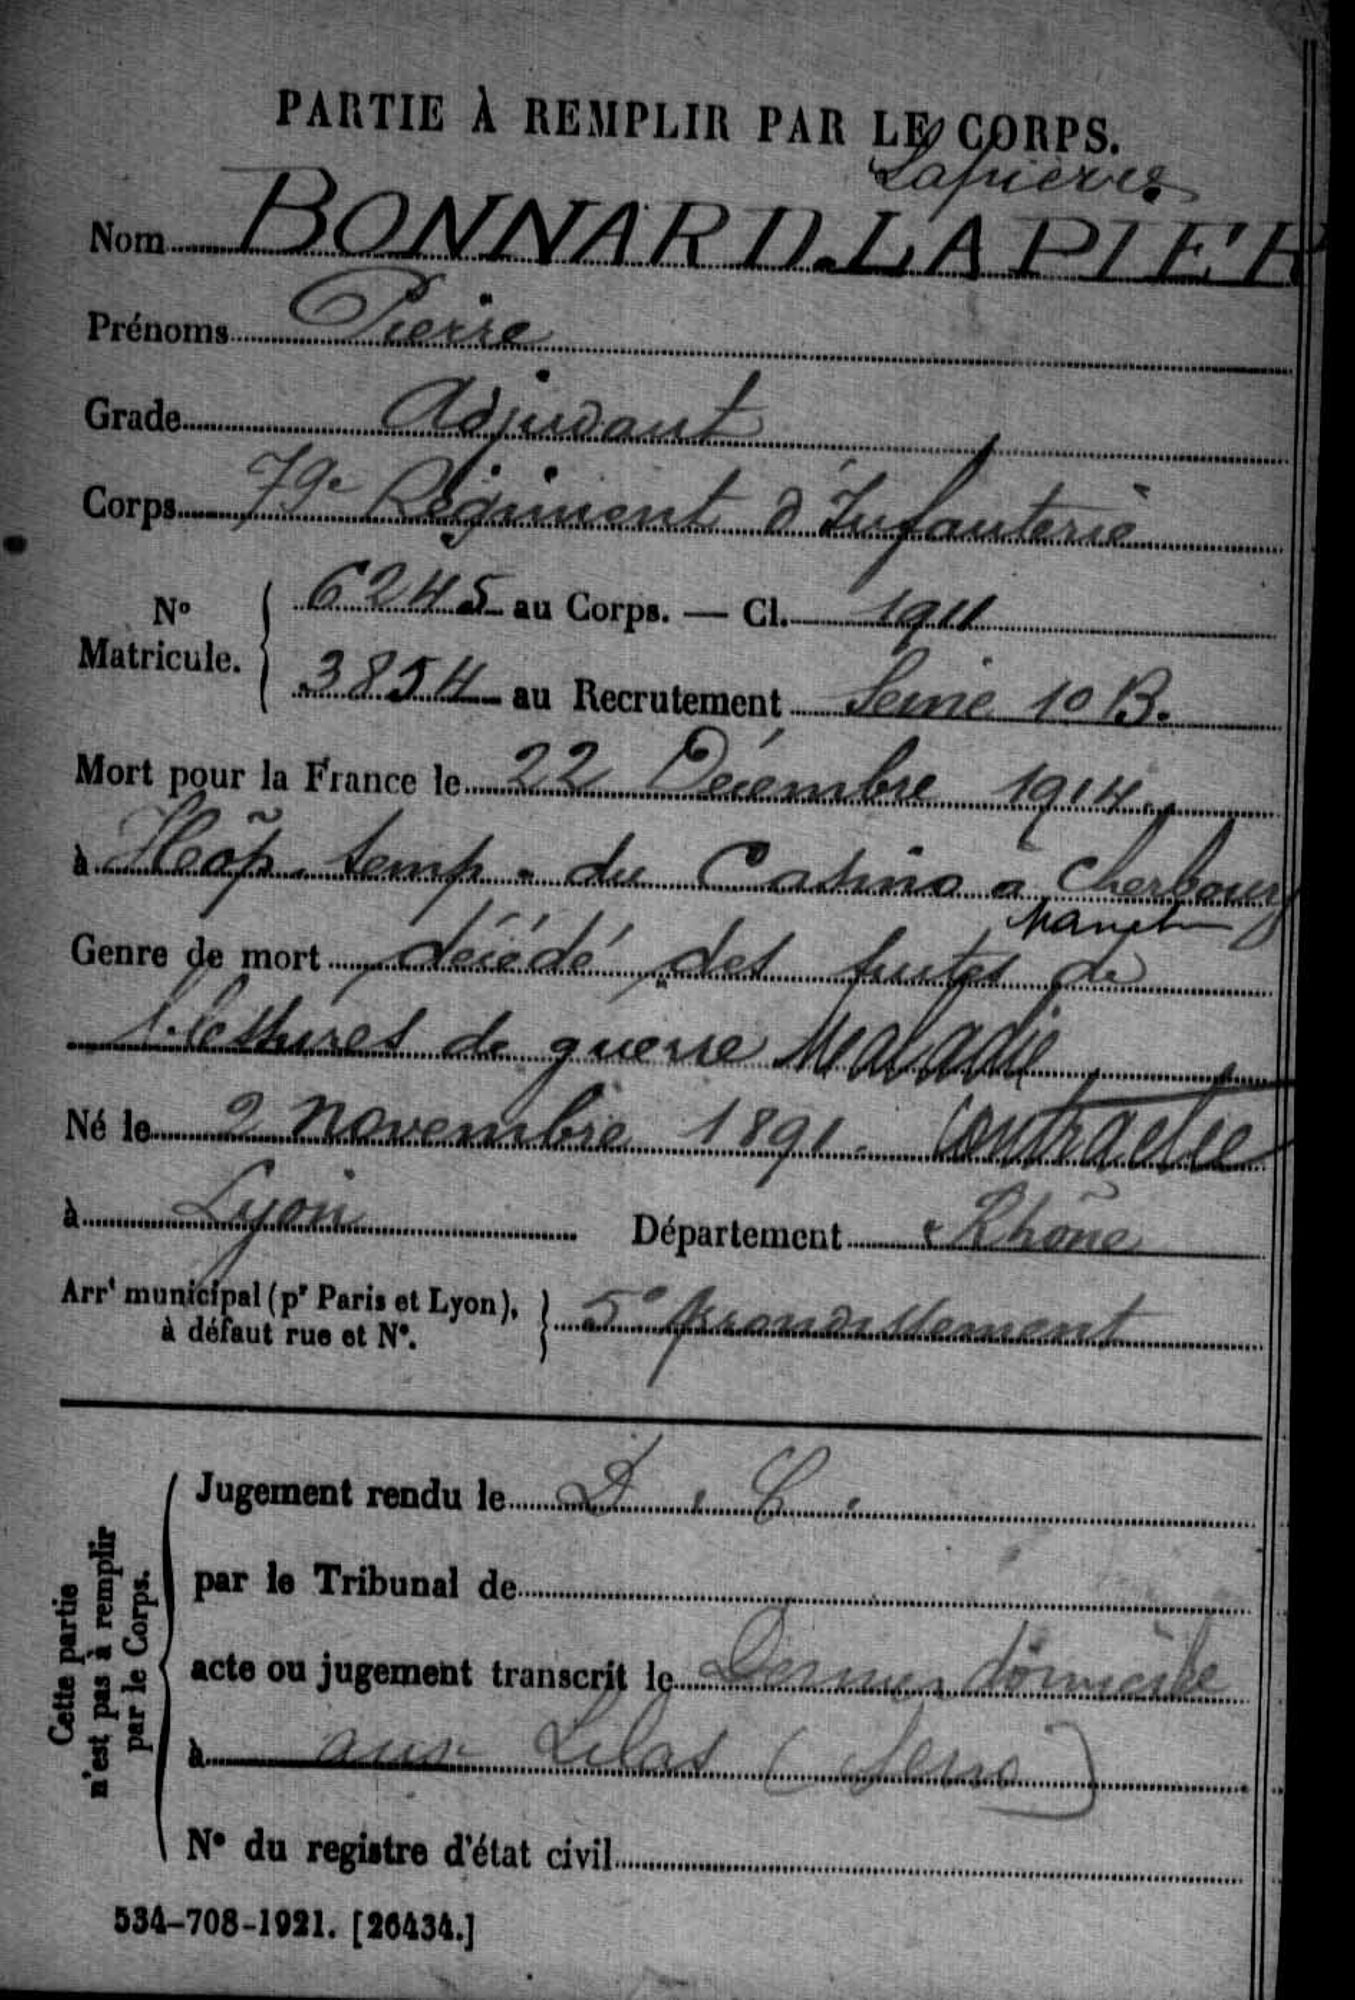 PARTIE À REMPLIR PAR LE CORPS.
Lapierre
Nom BONNARD-LAPIER
Prénoms Pierre
Grade Adjudant
Corps 79e Régiment d'Infanterie
No Matricule. 6245 au Corps. — Cl. 1911
3854 au Recrutement Seine 10 B.
Mort pour la France le 22 Décembre 1914
à Hôp. temp. du Casino à Cherbourg
Manche
Genre de mort décédé des suites de
blessures de guerre Maladie
Né le 2 Novembre 1891. Contractée
à Lyon Département Rhône
Arrt municipal (pr Paris et Lyon), à défaut rue et No. 5e Arrondissement
Cette partie n'est pas à remplir par le Corps.
Jugement rendu le D. C.
par le Tribunal de
acte ou jugement transcrit le Dernier domicile
à aux Lilas (Seine)
No du registre d'état civil
534-708-1921. [26434.]